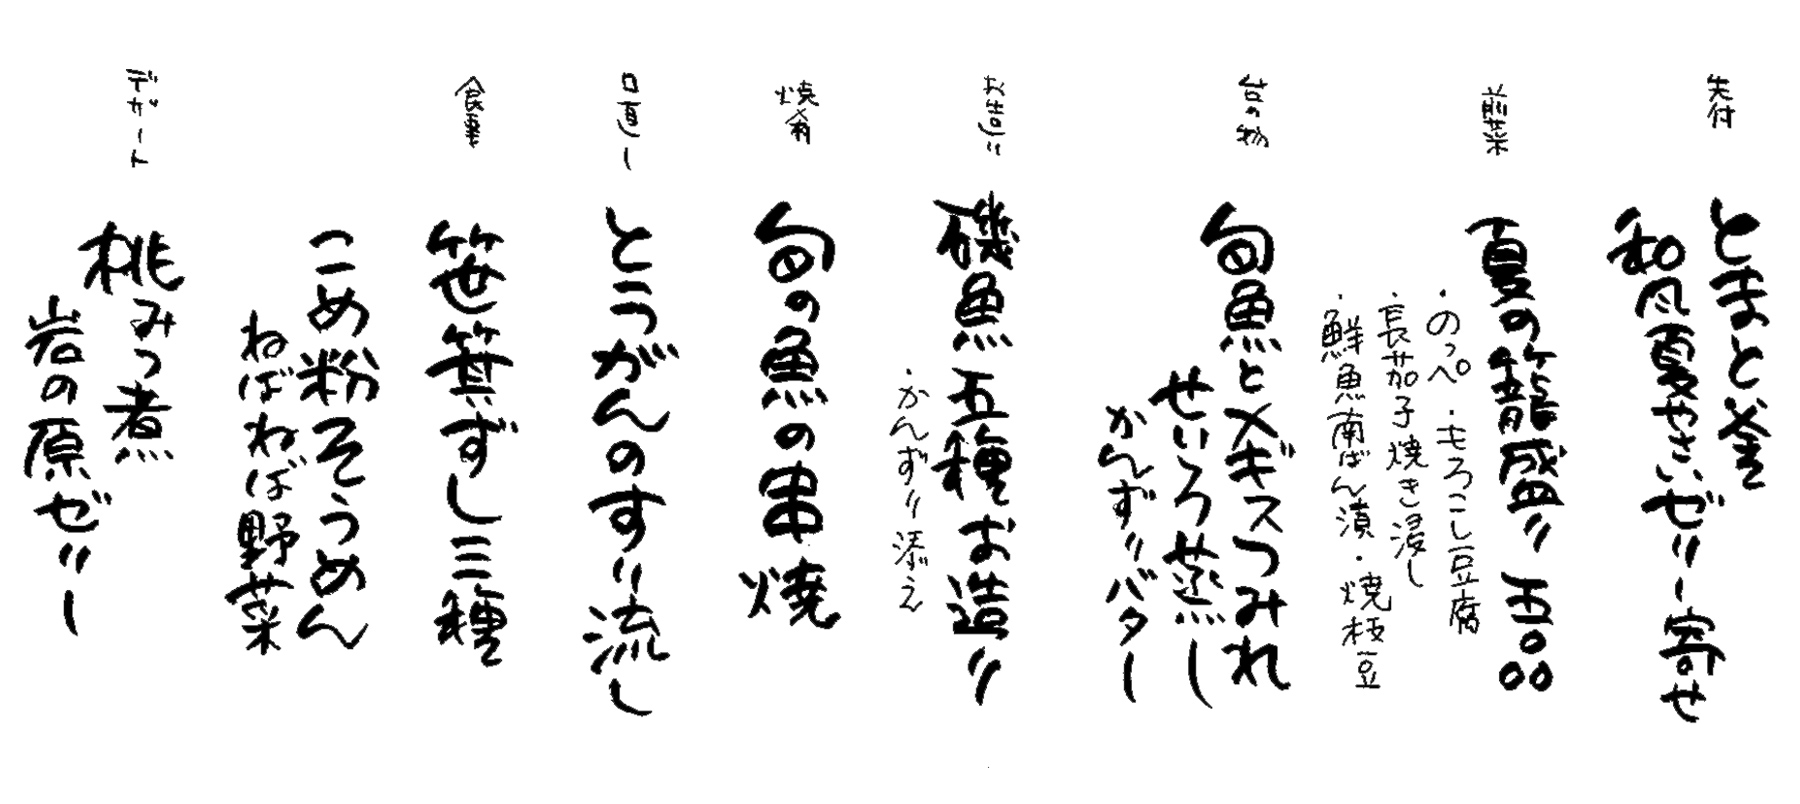 先付
とまと釜
和風夏やさいゼリー寄せ
前菜
夏の籠盛り 五品
・のっぺ ・もろこし豆腐
・長茄子焼き浸し
・鮮魚南ばん漬 ・焼枝豆
台の物
旬魚とメギスつみれ
せいろ蒸し
かんずりバター
お造り
磯魚五種お造り
・かんずり添え
焼肴
旬の魚の串焼
口直し
とうがんのすり流し
食事
笹箕ずし三種
こめ粉そうめん
ねばねば野菜
デザート
桃みつ煮
岩の原ゼリー